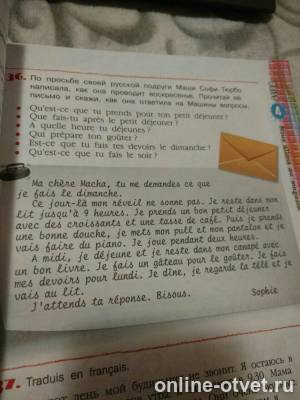 36. По просьбе своей русской подруги Маши Софи Тюрбо
написала, как она проводит воскресенье. Прочитай её
письмо и скажи, как она ответила на Машины вопросы.
Qu'est-ce que tu prends pour ton petit déjeuner?
Que fais-tu après le petit déjeuner?
A quelle heure tu déjeunes?
Qui prépare ton goûter?
Est-ce que tu fais tes devoirs le dimanche?
Qu'est-ce que tu fais le soir?
4
Ma chère Macha, tu me demandes ce que
je fais le dimanche.
Ce jour-là mon réveil ne sonne pas. Je reste dans mon
lit jusqu'à 9 heures. Je prends un bon petit déjeuner
avec des croissants et une tasse de café. Puis je prends
une bonne douche, je mets mon pull et mon pantalon et je
vais faire du piano. Je joue pendant deux heures.
A midi, je déjeune et je reste dans mon canapé avec
un bon livre. Je fais un gâteau pour le goûter. Je fais
mes devoirs pour lundi. Je dîne, je regarde la télé et je
vais au lit.
J'attends ta réponse. Bisous.
Sophie
37. Traduis en français.
день мой будильник не звонит. Я остаюсь в
9.30. Мама
online-otvet.ru